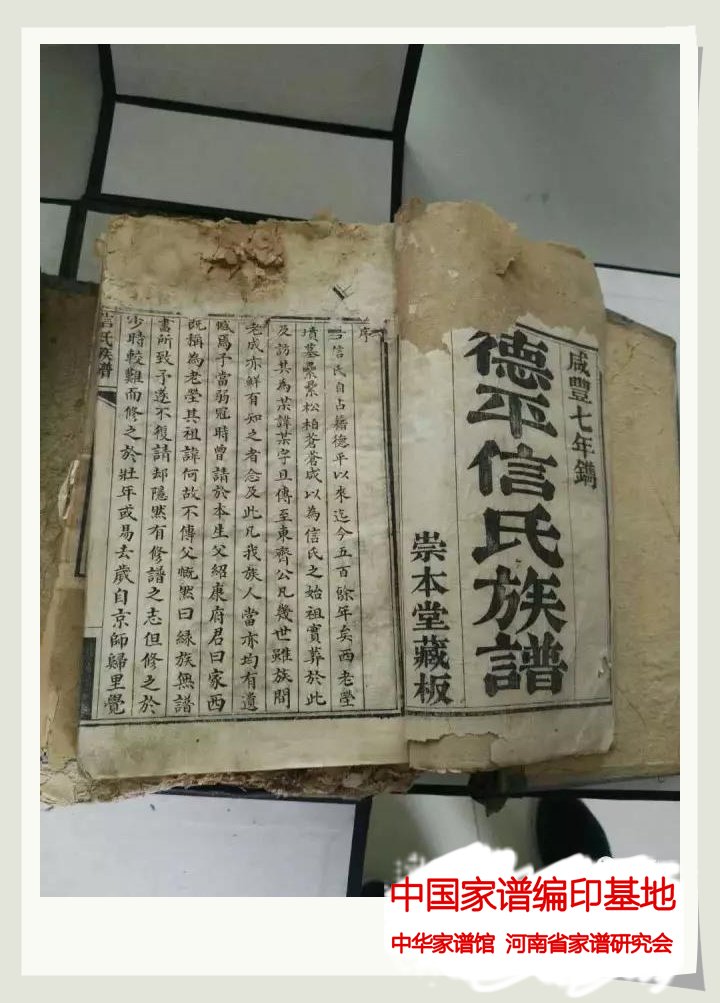 咸豐七年鐫
德平信氏族譜
崇本堂藏板
序
吾信氏自占籍德平以來迄今五百餘年矣西老塋
墳墓纍纍松柏蒼蒼咸以為信氏之始祖實葬於此
及訪其為某諱某字且傳至東齊公凡幾世雖族間
老成亦鮮有知之者念及此凡我族人當亦均有遺
憾焉予當弱冠時曾請於本生父紹康府君曰家西
既稱為老塋其祖諱何故不傳父慨然曰緣族無譜
書所致予遂不復請却隱然有修譜之志但修之於
少時較難而修之於壯年或易去歲自京師歸里覺
信氏族譜
中国家谱编印基地
中华家谱馆 河南省家谱研究会